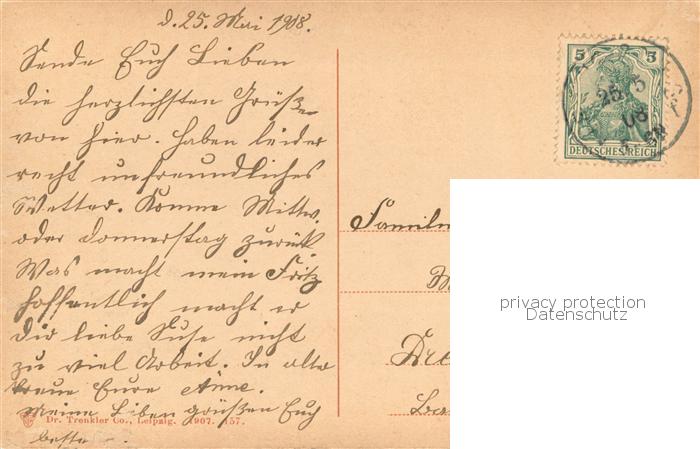 d. 25. Mai 1908.
Sende Euch Lieben
die herzlichsten Grüße
von hier. Haben leider
recht unfreundliches
Wetter. Komme Mittw.
oder Donnerstag zurück.
Was macht mein Fritz
hoffentlich macht er
Dir liebe Suse nicht
zu viel Arbeit. In alter
treue Eure Anne.
Meine Lieben grüßen Euch
bestens.
Dr. Trenkler Co., Leipzig. 1907. 157.
5 5
DEUTSCHES REICH
25 5
08
Familie
Dre
privacy protection
Datenschutz